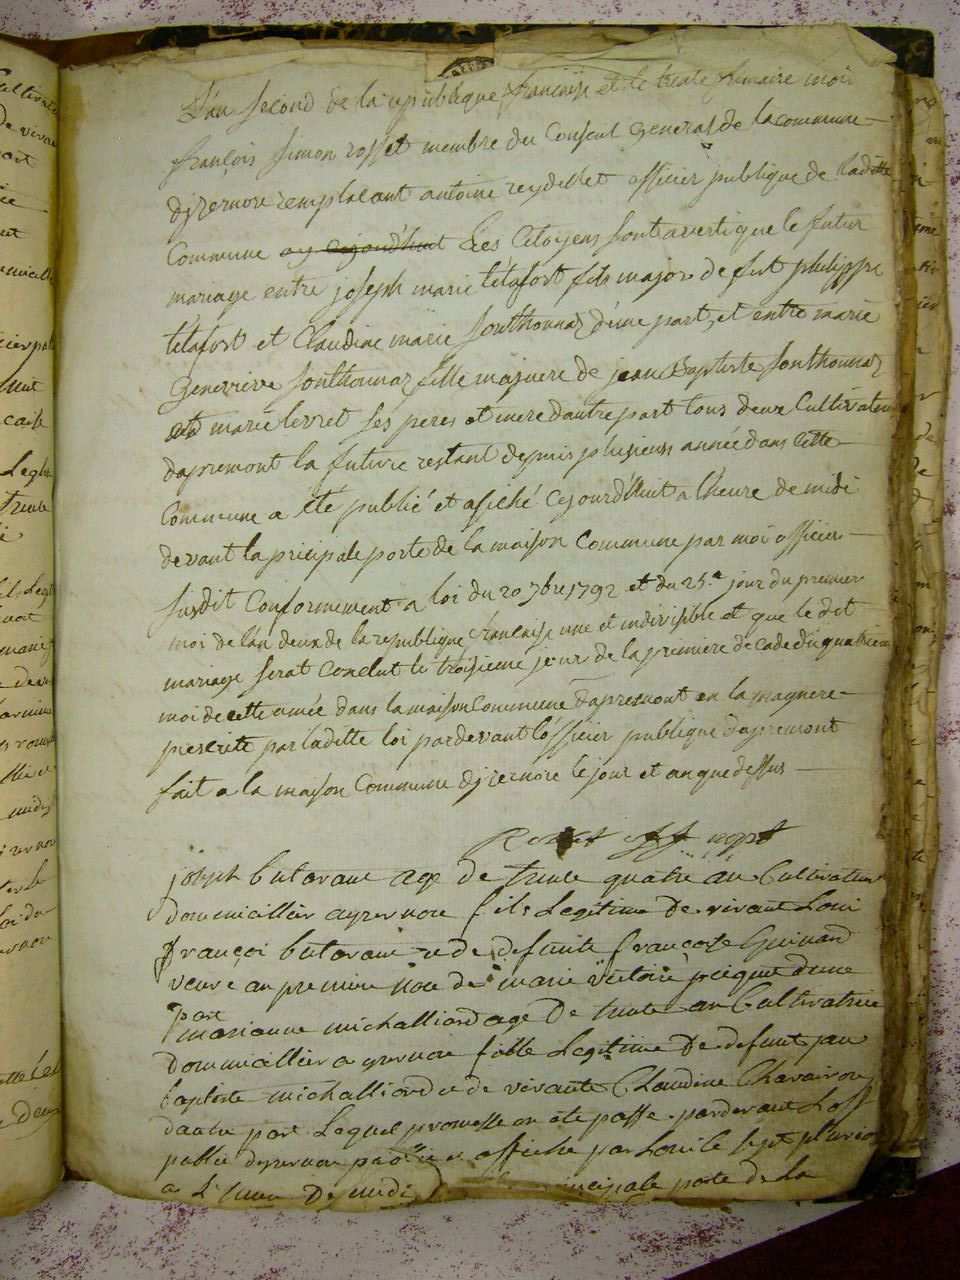 L'an second de la republique francaise et le trente frimaire moi
françois Simon rosset membre du Conseul general de la commune
dizernore remplacant antoine reydellet officier publique de laditte
Commune Les Citoyens sont averti que le futur
mariage entre joseph marie tétafort fils major de fut philippe
tétafort et Claudine marie Sonthonnaz d'une part, et entre marie
Genevieve Sonthonnaz fille majuere de jean Baptiste Sonthonnaz
et marie Ses peres et mere dautre part tous deux Cultivateur
dapremont la future restant depuis plusieurs année dans Cette
Commune a été publié et afiché Cejourd'huit a l'heure de midi
devant la pricipale porte de la maison Commune par moi officier
susdit Conformement a loi du 20 7bre 1792 et du 25.e jour du premier
moi de l'an deux de la republique francaise une et indivisible et que le dit
mariage serat Conclut le troisieme jour de la premiere decade du quatrieme
moi de cette année dans la maison Commune dapremont en la magnere
prescrite par laditte loi pardevant l'officier publique dapremont
fait a la maison Commune dizernore le jour et an que dessus
Rosset off
joseph butavant age de trente quatre an Cultivateur
domicillier ayzernore fils Legitime de vivant Loui
françoi butavant e de defunte françoise Guinand
veuve an premiere noce de marie victoire dune
part
marianne michalliard age De trente an Cultivatrice
Domicillier a yzernore fille Legitime De defunt jan
baptiste michalliard e de vivante Claudine
dautre part Lequel promesse on éte passe pardevant Loff
public dyzernore e affiche par Loui le sept pluvio
a L'heure De midi principale porte de La